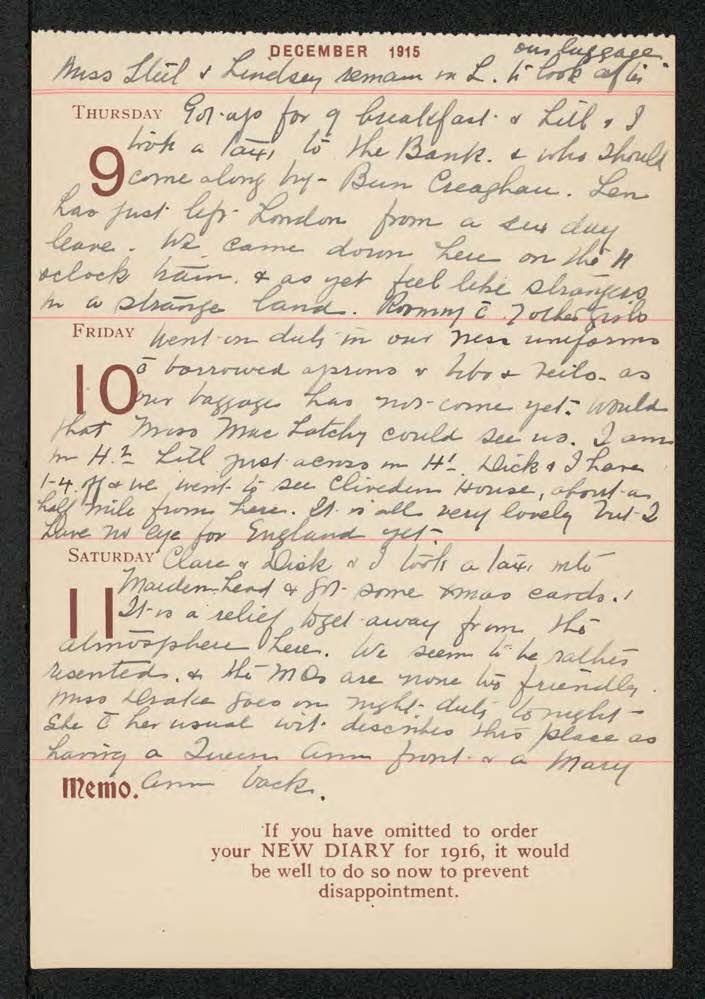 DECEMBER 1915
our luggage
Miss Steel & Lindsey remain in L. to look after
THURSDAY Got up for 9 breakfast & Lill & I
9 took a taxi to the Bank. & who should
come along by - Bun Creaghan. Len
has just left London from a six day
leave. We came down here on the 11
oclock train. & as yet feel like strangers
in a strange land. Rooming c̄ 7 other girls
FRIDAY Went on duty in our mess uniforms
10 c̄ borrowed aprons & bibs & veils - as
our baggage has not come yet. Would
that Miss Mac Latchy could see us. I am
in H.2 Lill just across in H1. Dick & I have
1-4 off & we went to see Cliveden House, about a
half mile from here. It is all very lovely but I
have no eye for England yet.
SATURDAY Clare & Dick & I took a taxi into
11 Maiden-head & got some xmas cards.
It is a relief to get away from the
atmosphere here. We seem to be rather
resented. & the MOs are none too friendly.
Miss Drake goes on night duty tonight -
She c̄ her usual wit describes this place as
having a Queen Ann front & a Mary
Memo. Ann back.
If you have omitted to order
your NEW DIARY for 1916, it would
be well to do so now to prevent
disappointment.